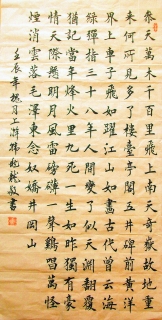 參天萬木千百里飛上南天奇嶽故地重
來何所見多了樓臺亭閣五井碑前黃洋
界上車子飛如躍江山如畫古代曾云海
綠彈指三十八年人間變了似天淵翻覆
猶記當時烽火里九死一生如昨獨有豪
情天際懸明月風雷磅礴一聲鷄唱萬怪
煙消雲落毛澤東念奴嬌井岡山
壬辰年槐月上浣書